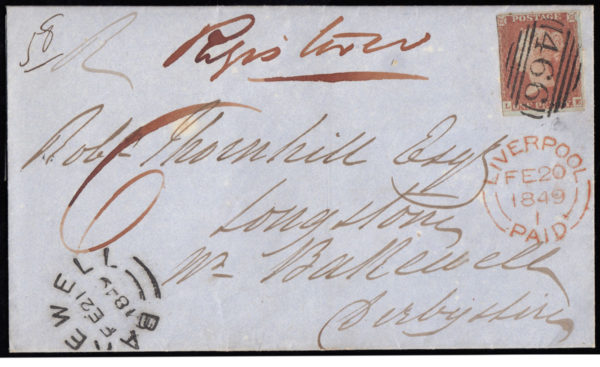 58
R
Registered
POSTAGE
466
L E
6
LIVERPOOL
FE20
1849
1
PAID
Robt Thornhill Esqr
Longston
Nr Bakewell
Derbyshire
BAKEWELL
FE21
1849